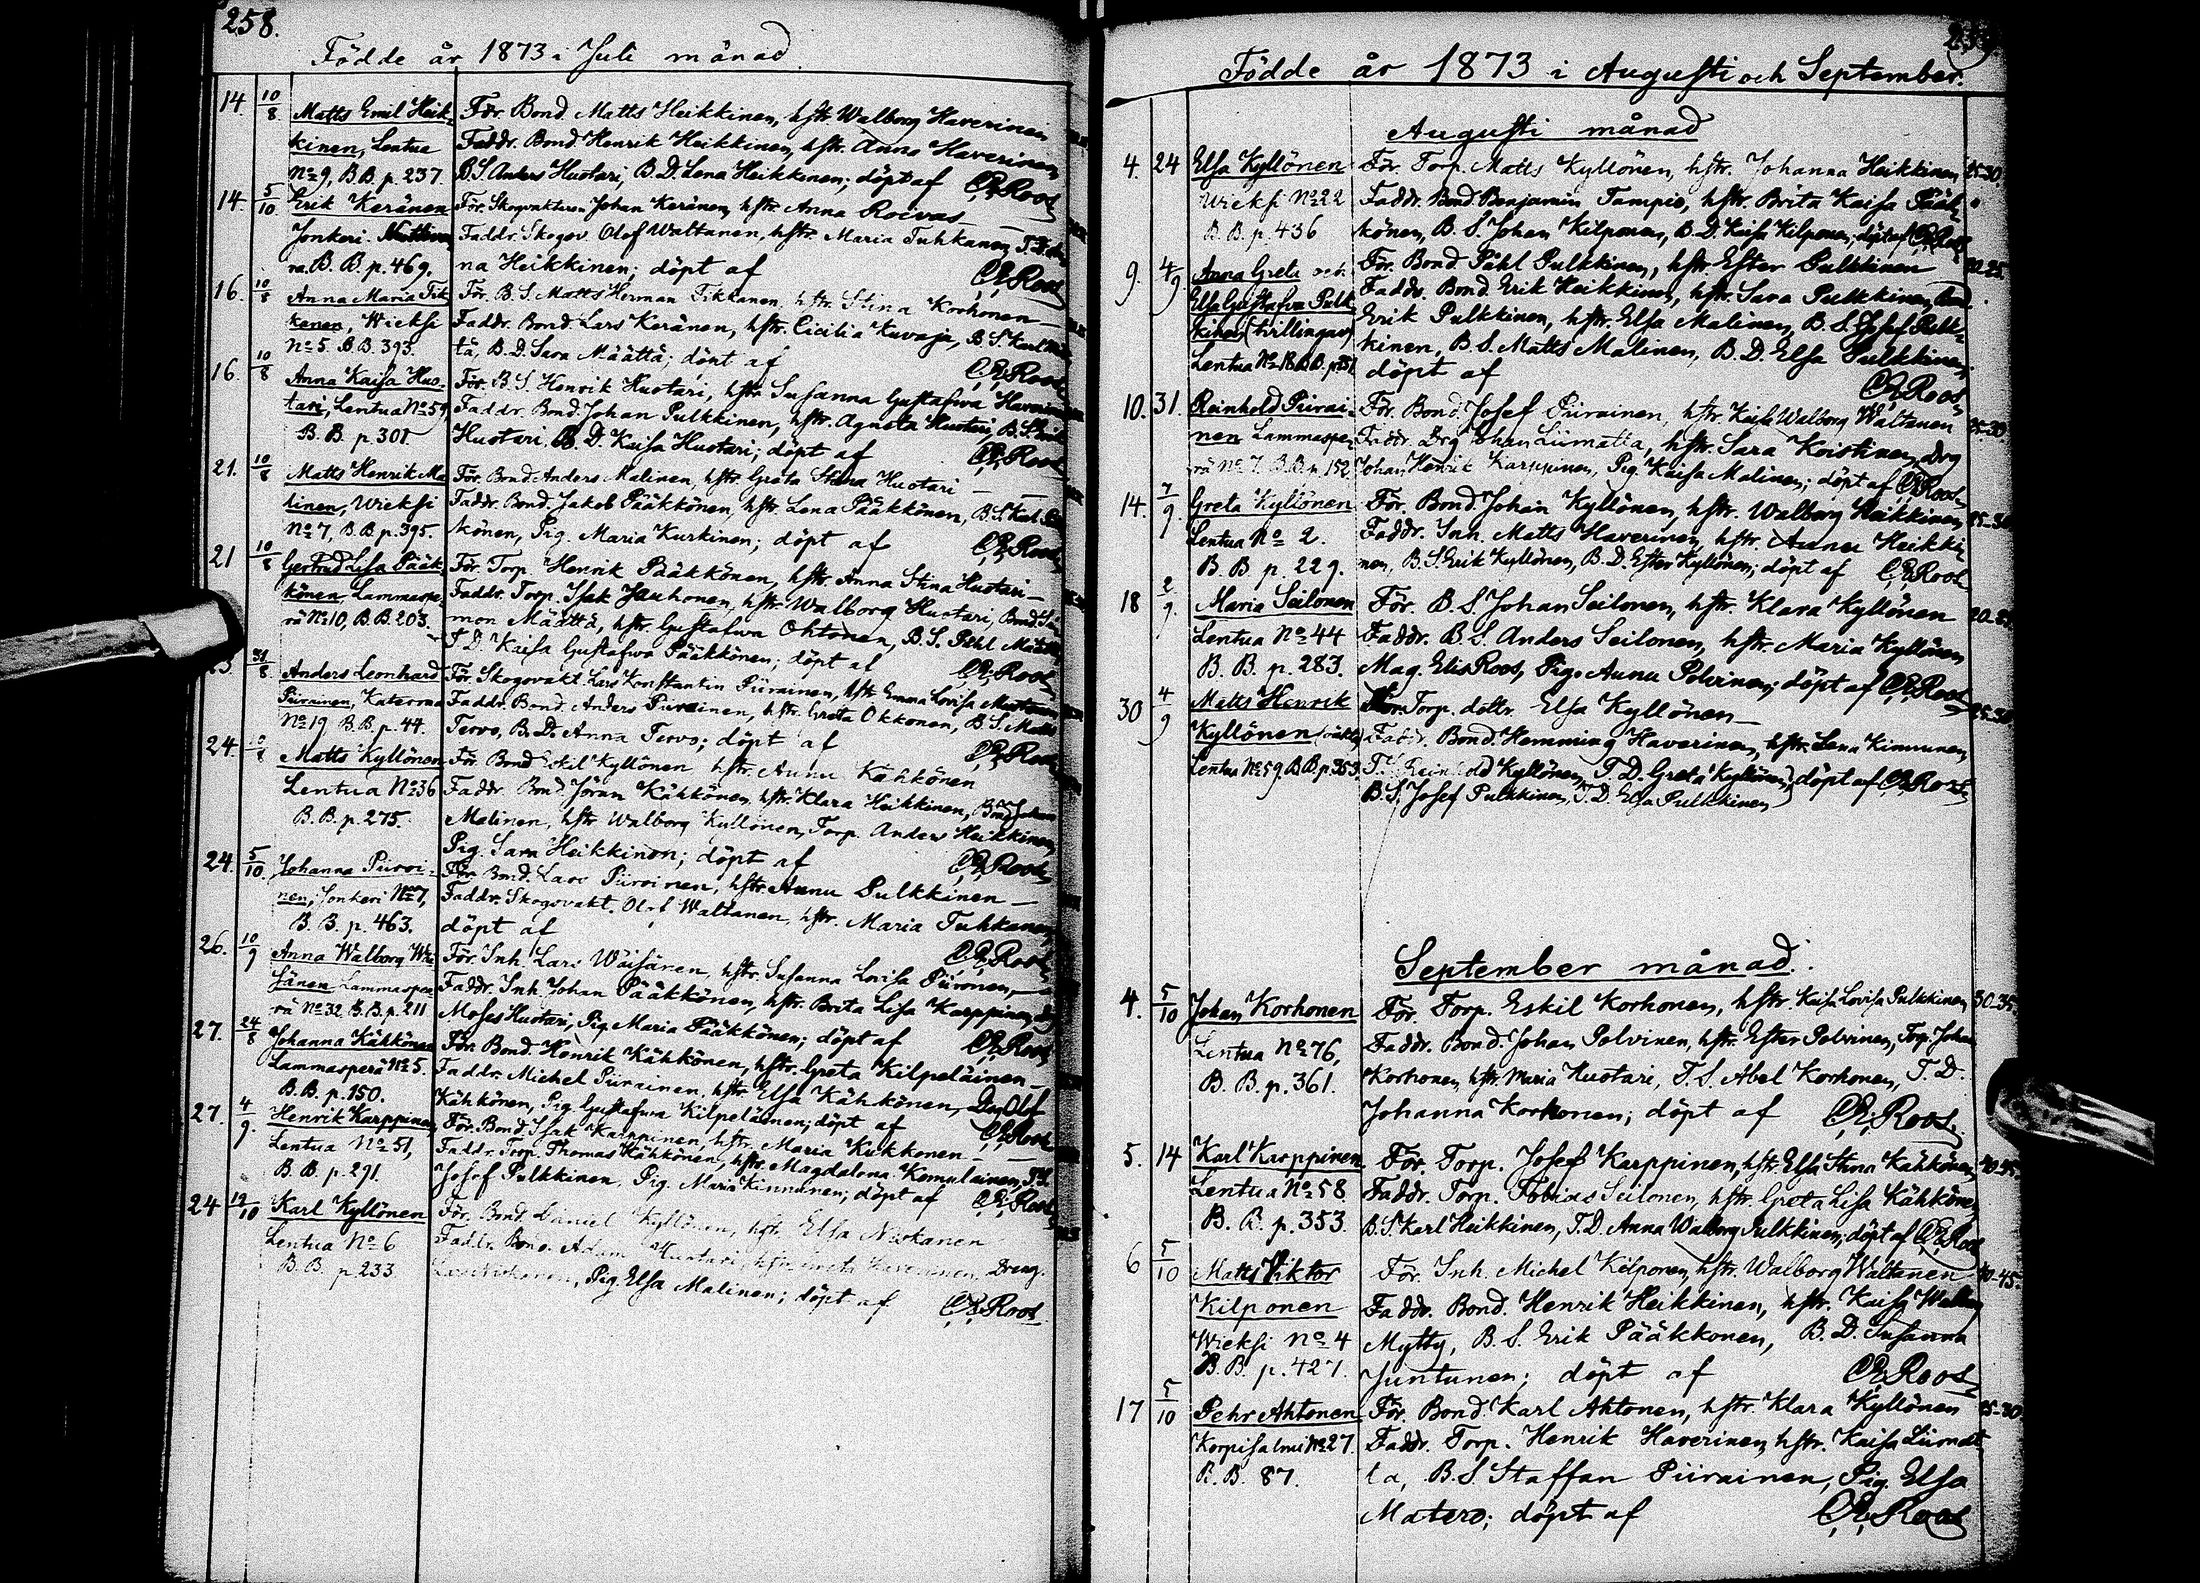 258.
Födde år 1873 i Juli månad.
14. 10/8 Matts Emil Heik- För. Bond. Matts Heikkinen, hstr. Walborg Haverinen
kinen, Lentua Faddr. Bond. Henrik Heikkinen, hstr. Anna Haverinen,
No 9, B.B. p. 237. B.S. Anders Huotari, B.D. Lena Heikkinen; döpt af C.R. Roos
14. 5/10 Erik Keränen För. Skogvaktaren Johan Keränen, hstr. Anna Roivas
Jonkeri Faddr. Skogv. Olof Waltanen, hstr. Maria Tuhkanen,
B.B. p. 469. na Heikkinen; döpt af C.R. Roos
16. 10/8 Anna Maria Tik- För. B.S. Matts Herman Tikkanen, hstr. Stina Korhonen
kanen, Wieksi Faddr. Bond. Lars Keränen, hstr. Cicilia Kuvaja, B.S. Karl
No 5. B.B. 393. tä, B.D. Sara Määttä; döpt af C.R. Roos
16. 10/8 Anna Kaisa Huo- För. B.S. Henrik Huotari, hstr. Susanna Gustafwa Haverinen
tari, Lentua No 59, Faddr. Bond. Johan Pulkkinen, hstr. Agneta Huotari, B.S. Erik
B.B. p. 301 Huotari, B.D. Kaisa Huotari; döpt af C.R. Roos
21. 10/8 Matts Henrik Ma- För. Bond. Anders Malinen, hstr. Greta Stina Huotari
linen, Wieksi Faddr. Bond. Jakob Pääkkönen, hstr. Lena Pääkkönen, B.S. Karl
No 7, B.B. p. 395. könen, Pig. Maria Kurkinen; döpt af C.R. Roos
21 10/8 Gertrud Lisa Pääk- För. Torp. Henrik Pääkkönen, hstr. Anna Stina Huotari
könen Lammaspe- Faddr. Torp. Isak Jauhonen, hstr. Walborg Huotari, Bond. Si-
rä No 10, B.B. 203. mon Määttä, hstr. Gustafwa Ohtonen, B.S. Påhl Määttä,
T.D. Kaisa Gustafwa Pääkkönen; döpt af C.R. Roos
23. 31/8 Anders Leonhard För. Skogsvakt. Lars Konstantin Piirainen, hstr. Emma Lovisa
Piirainen, Katerma Faddr. Bond. Anders Piirainen, hstr. Greta Okkonen, B.S. Matts
No 19 B.B. p. 44. Tervo, B.D. Anna Tervo; döpt af C.R. Roos
24. Matts Kyllönen För. Bond. Eskil Kyllönen hstr. Annu Kähkönen
Lentua No 36 Faddr. Bond. Jöran Kähkönen, hstr. Klara Heikkinen, Bond. Johan
B.B. p. 275. Malinen, hstr. Walborg Kyllönen, Torp. Anders Heikkinen,
Pig. Sara Heikkinen; döpt af C.R. Roos
24. 5/10. Johanna Piiroi- För. Bond. Lars Piiroinen, hstr. Annu Pulkkinen
nen, Jonkeri No 7, Faddr. Skogsvakt. Olof Waltanen, hstr. Maria Tuhkanen,
B.B. p. 463. döpt af C.R. Roos
26. 10/9 Anna Walborg Wäi- För. Inh. Lars Wäisänen, hstr. Susanna Lovisa Piironen,
sänen Lammaspe- Faddr. Inh. Johan Pääkkönen, hstr. Brita Lisa Karppinen,
rä No 32 B.B. p. 211 Moses Huotari, Pig. Maria Pääkkönen; döpt af C.R. Roos
27. 24/8 Johanna Kähkönen För. Bond. Henrik Kähkönen, hstr. Greta Kilpeläinen
Lammasperä No 5. Faddr. Michel Piirainen, hstr. Elsa Kähkönen, Drg. Olof
B.B. p. 150. Kähkönen, Pig. Gustafwa Kilpeläinen; döpt af C.R. Roos
27. 4/9. Henrik Karppinen För. Bond. Isak Karppinen, hstr. Maria Kukkonen
Lentua No 51, Faddr. Torp. Thomas Kähkönen, hstr. Magdalena Komulainen, T.S.
B.B. p. 291. Josef Pulkkinen, Pig. Maria Kinnunen; döpt af C.R. Roos
24 12/10 Karl Kyllönen För. Bond. Daniel Kyllönen, hstr. Elsa Niskanen
Lentua No 6 Faddr. Bond. Adam Huotari, hstr. Greta Haverinen, Dreng.
B.B. p. 233 Lars Niskanen, Pig. Elsa Malinen; döpt af C.R. Roos
Födde år 1873 i Augusti och September.
Augusti månad
4. 24 Elsa Kyllönen För. Torp. Matts Kyllönen, hstr. Johanna Heikkinen 25-30.
Wieksi No 22 Faddr. Bond. Benjamin Tampio, hstr. Brita Kaisa Pääk-
B.B. p. 436 könen, B.S. Johan Kilponen, B.D. Kaisa Kilponen; döpt af C.R. Roos
9. 4/9 Anna Greta och För. Bond. Påhl Pulkkinen, hstr. Ester Pulkkinen 20-25.
Elsa Gustafwa Pulk- Faddr. Bond. Erik Heikkinen, hstr. Sara Pulkkinen, Bond.
kinen (tvillingar) Erik Pulkkinen, hstr. Elsa Malinen, B.S. Josef Pulk-
Lentua No 18 B.B. kinen, B.S. Matts Malinen, B.D. Elsa Pulkkinen;
döpt af C.R. Roos
10. 31. Reinhold Piirai- För. Bond. Josef Piirainen, hstr. Kaisa Walborg Waltanen 25-30.
nen Lammaspe- Faddr. Drg Johan Liimatta, hstr. Sara Koistinen, Drg
rä No 7. B.B. p. 152 Johan Henrik Karppinen, Pig. Kaisa Malinen; döpt af C.R. Roos
14. 7/9 Greta Kyllönen För. Bond. Johan Kyllönen, hstr. Walborg Heikkinen, 25-30
Lentua No 2. Faddr. Inh. Matts Haverinen, hstr. Annu Heikki-
B.B p. 229. nen, B.S. Erik Kyllönen, B.D. Ester Kyllönen; döpt af C.R. Roos
18 2/9. Maria Seilonen För. B.S. Johan Seilonen, hstr. Klara Kyllönen
Lentua No 44 Faddr. B.S. Anders Seilonen, hstr. Maria Kyllönen,
B.B. p. 283. Mag. Elis Roos, Pig. Annu Polvinen; döpt af C.R. Roos
30 4/9 Matts Henrik För. Torp. dottr. Elsa Kyllönen 25-30.
Kyllönen (oäkta) Faddr. Bond. Hemming Haverinen, hstr. Lena Kinnunen,
Lentua No 59 B.B. p. 353. T.S. Reinhold Kyllönen, T.D. Greta Kyllönen, döpt af C.R. Roos
B.S. Josef Pulkkinen, T.D. Elsa Pulkkinen
September månad.
4. 5/10 Johan Korhonen För. Torp. Eskil Korhonen, hstr. Kaisa Lovisa Pulkkinen, 30-35.
Lentua No 76, Faddr. Bond. Johan Polvinen, hstr. Ester Polvinen, Torp. Johan
B.B. p. 361. Korhonen, hstr. Maria Huotari, T.S. Abel Korhonen, T.D.
Johanna Korhonen; döpt af C.R. Roos.
5. 14 Karl Karppinen För. Torp. Josef Karppinen, hstr. Elsa Stina Kähkönen, 40-45.
Lentua No 58. Faddr. Torp. Tobias Seilonen, hstr. Greta Lisa Kähkönen,
B.B. p. 353. B.S. Karl Heikkinen, T.D. Anna Walborg Pulkkinen; döpt af C.R. Roos
6 5/10 Matts Viktor För. Inh. Michel Kilponen, hstr. Walborg Waltanen 40-45.
Kilponen Faddr. Bond. Henrik Heikkinen, hstr. Kaisa Walborg
Wieksi No 4 Mytty, B.S. Erik Pääkkonen, B.D. Susanna
B.B. p. 427. Juntunen; döpt af C.R. Roos
17 5/10 Pehr Ahtonen För. Bond. Karl Ahtonen, hstr. Klara Kyllönen 25-30
Korpisalmi No 27. Faddr. Torp. Henrik Haverinen, hstr. Kaisa Liimat-
B.B. 87. ta, B.S Staffan Piirainen, Pig. Elsa
Matero; döpt af C.R. Roos